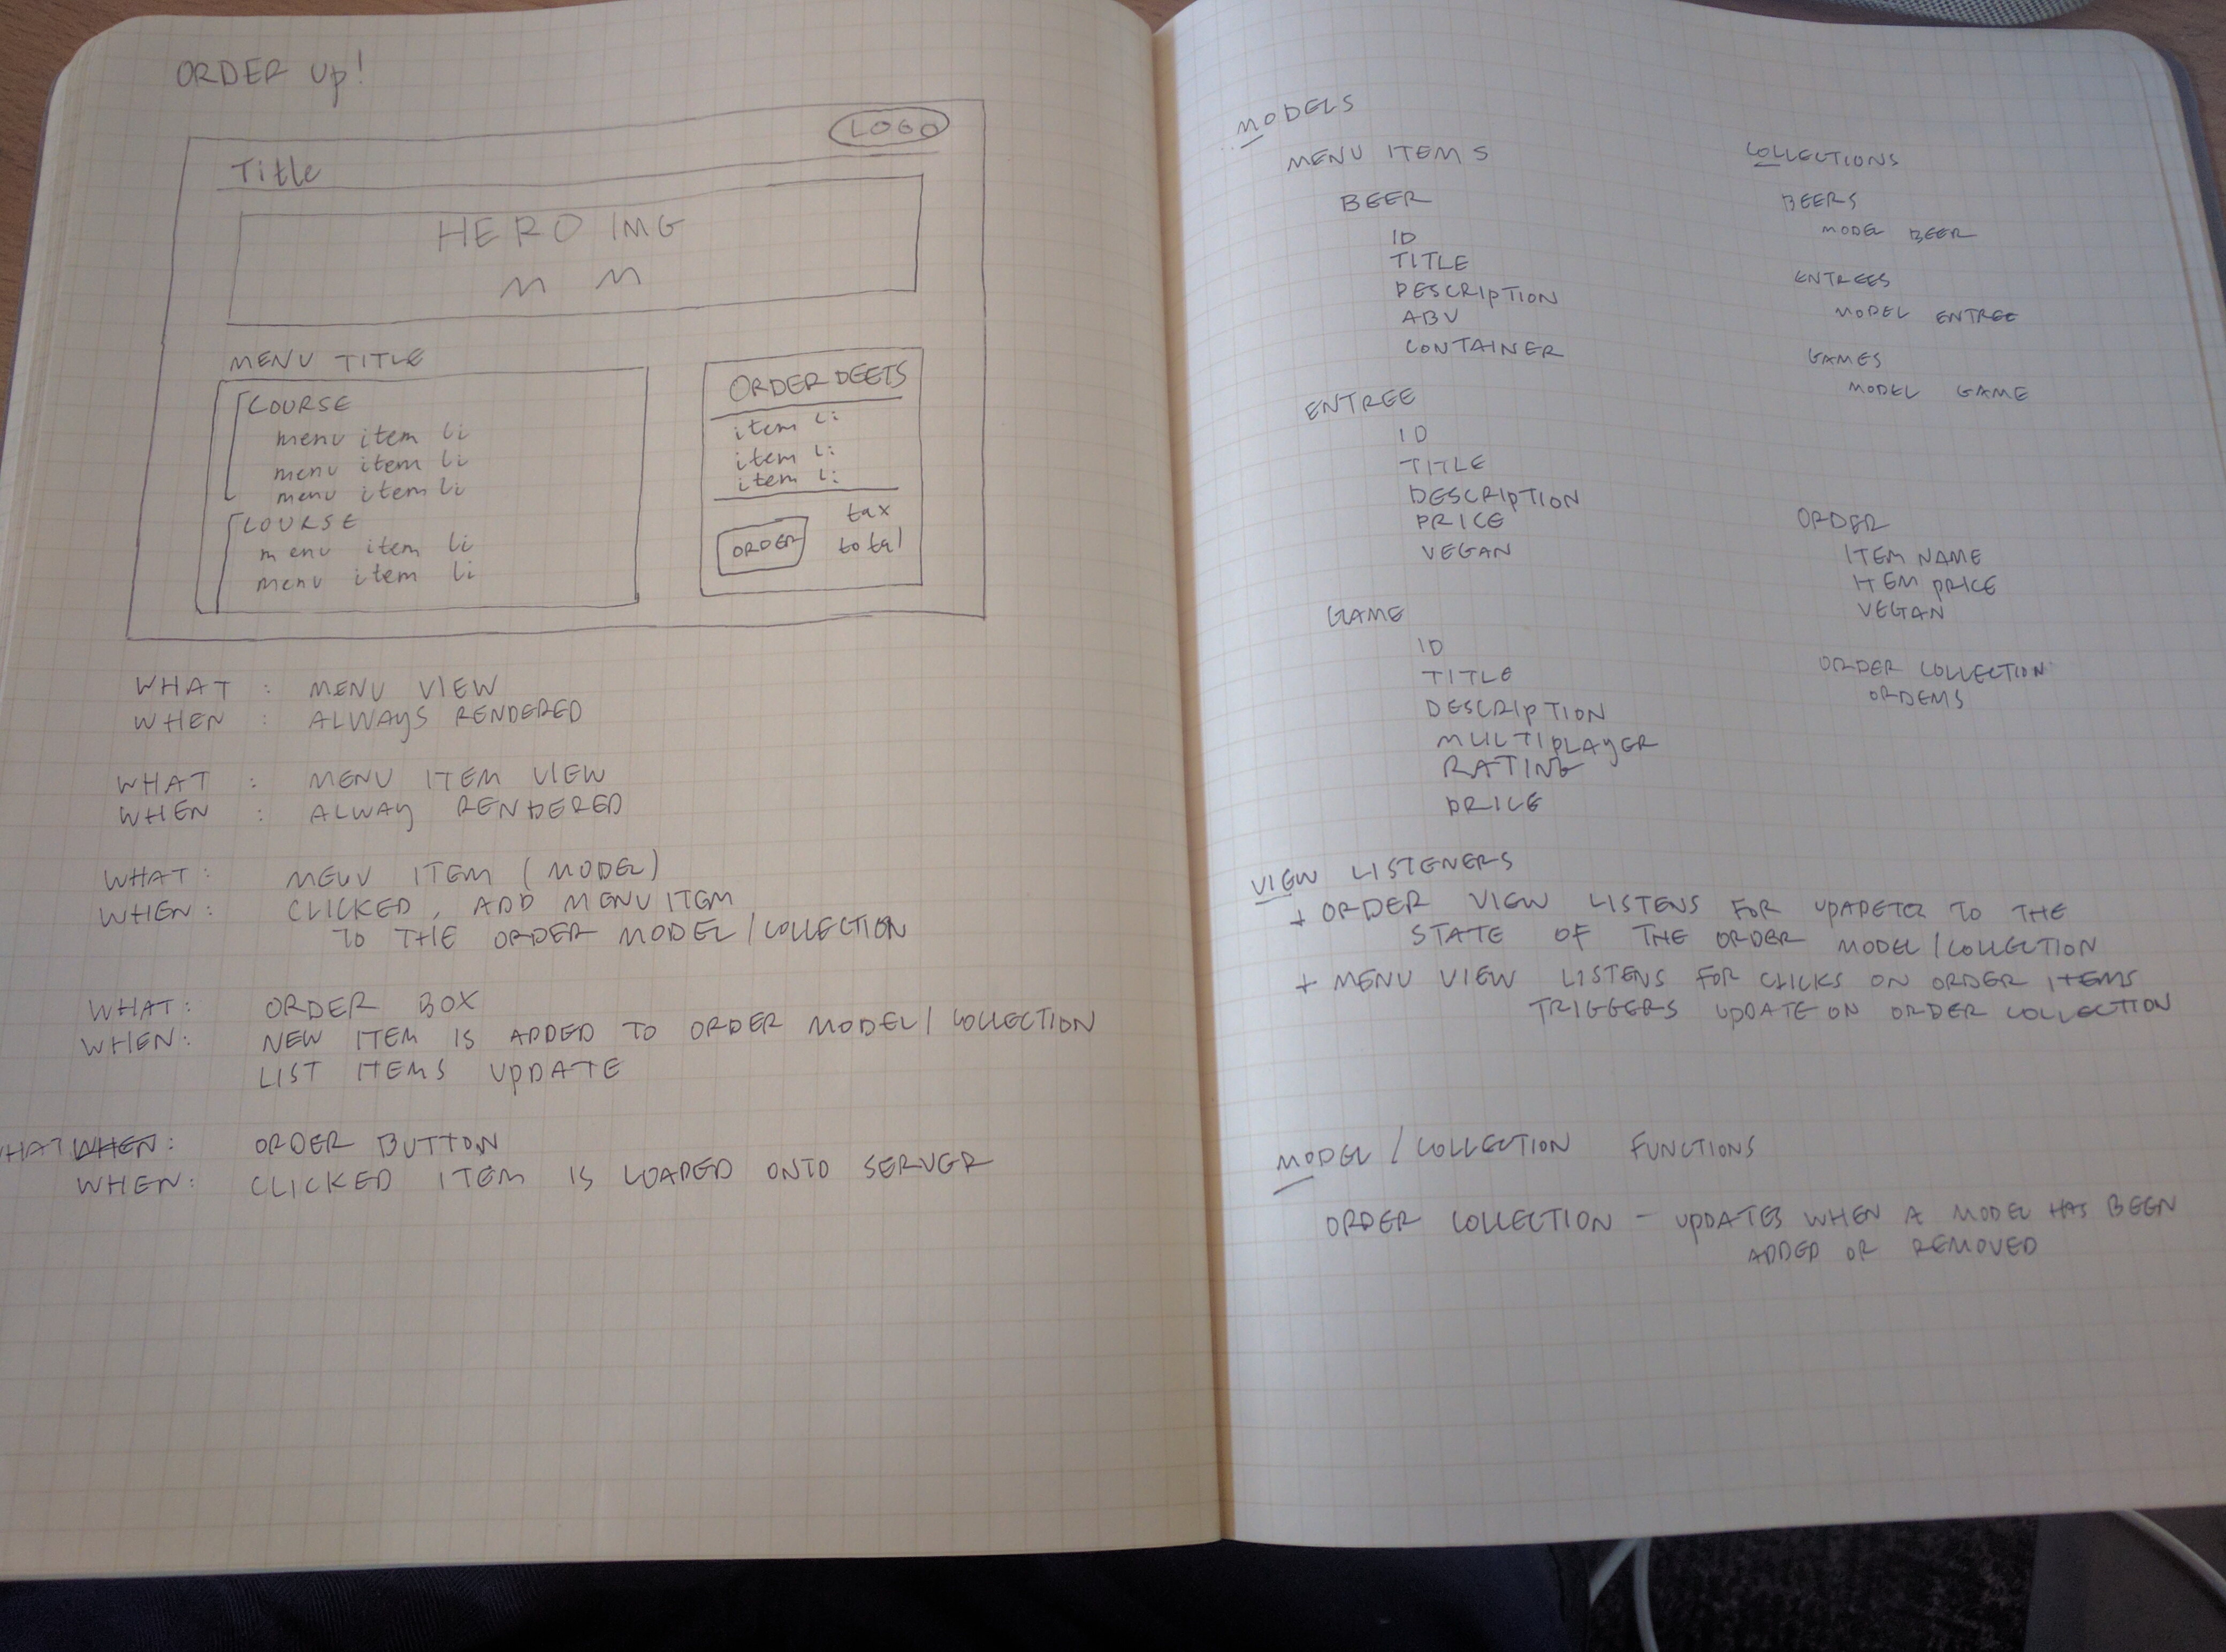 ORDER Up!
LOGO
Title
HERO IMG
MENU TITLE
COURSE
menu item li
menu item li
menu item li
COURSE
menu item li
menu item li
ORDER DEETS
item li
item li
item li
tax
ORDER
total
WHAT : MENU VIEW
WHEN : ALWAYS RENDERED
WHAT : MENU ITEM VIEW
WHEN : ALWAY RENDERED
WHAT : MENU ITEM (MODEL)
WHEN : CLICKED, ADD MENU ITEM
TO THE ORDER MODEL/COLLECTION
WHAT : ORDER BOX
WHEN : NEW ITEM IS ADDED TO ORDER MODEL/COLLECTION
LIST ITEMS UPDATE
WHAT WHEN : ORDER BUTTON
WHEN : CLICKED ITEM IS LOADED ONTO SERVER
MODELS
MENU ITEMS
BEER
ID
TITLE
DESCRIPTION
ABV
CONTAINER
ENTREE
ID
TITLE
DESCRIPTION
PRICE
VEGAN
GAME
ID
TITLE
DESCRIPTION
MULTIPLAYER
RATING
PRICE
COLLECTIONS
BEERS
MODEL BEER
ENTREES
MODEL ENTREE
GAMES
MODEL GAME
ORDER
ITEM NAME
ITEM PRICE
VEGAN
ORDER COLLECTION
VIEW LISTENERS
+ ORDER VIEW LISTENS FOR TO THE
STATE OF THE ORDER MODEL/COLLECTION
+ MENU VIEW LISTENS FOR CLICKS ON ORDER ITEMS
TRIGGERS UPDATE ON ORDER COLLECTION
MODEL / COLLECTION FUNCTIONS
ORDER COLLECTION – UPDATES WHEN A MODEL HAS BEEN
ADDED OR REMOVED